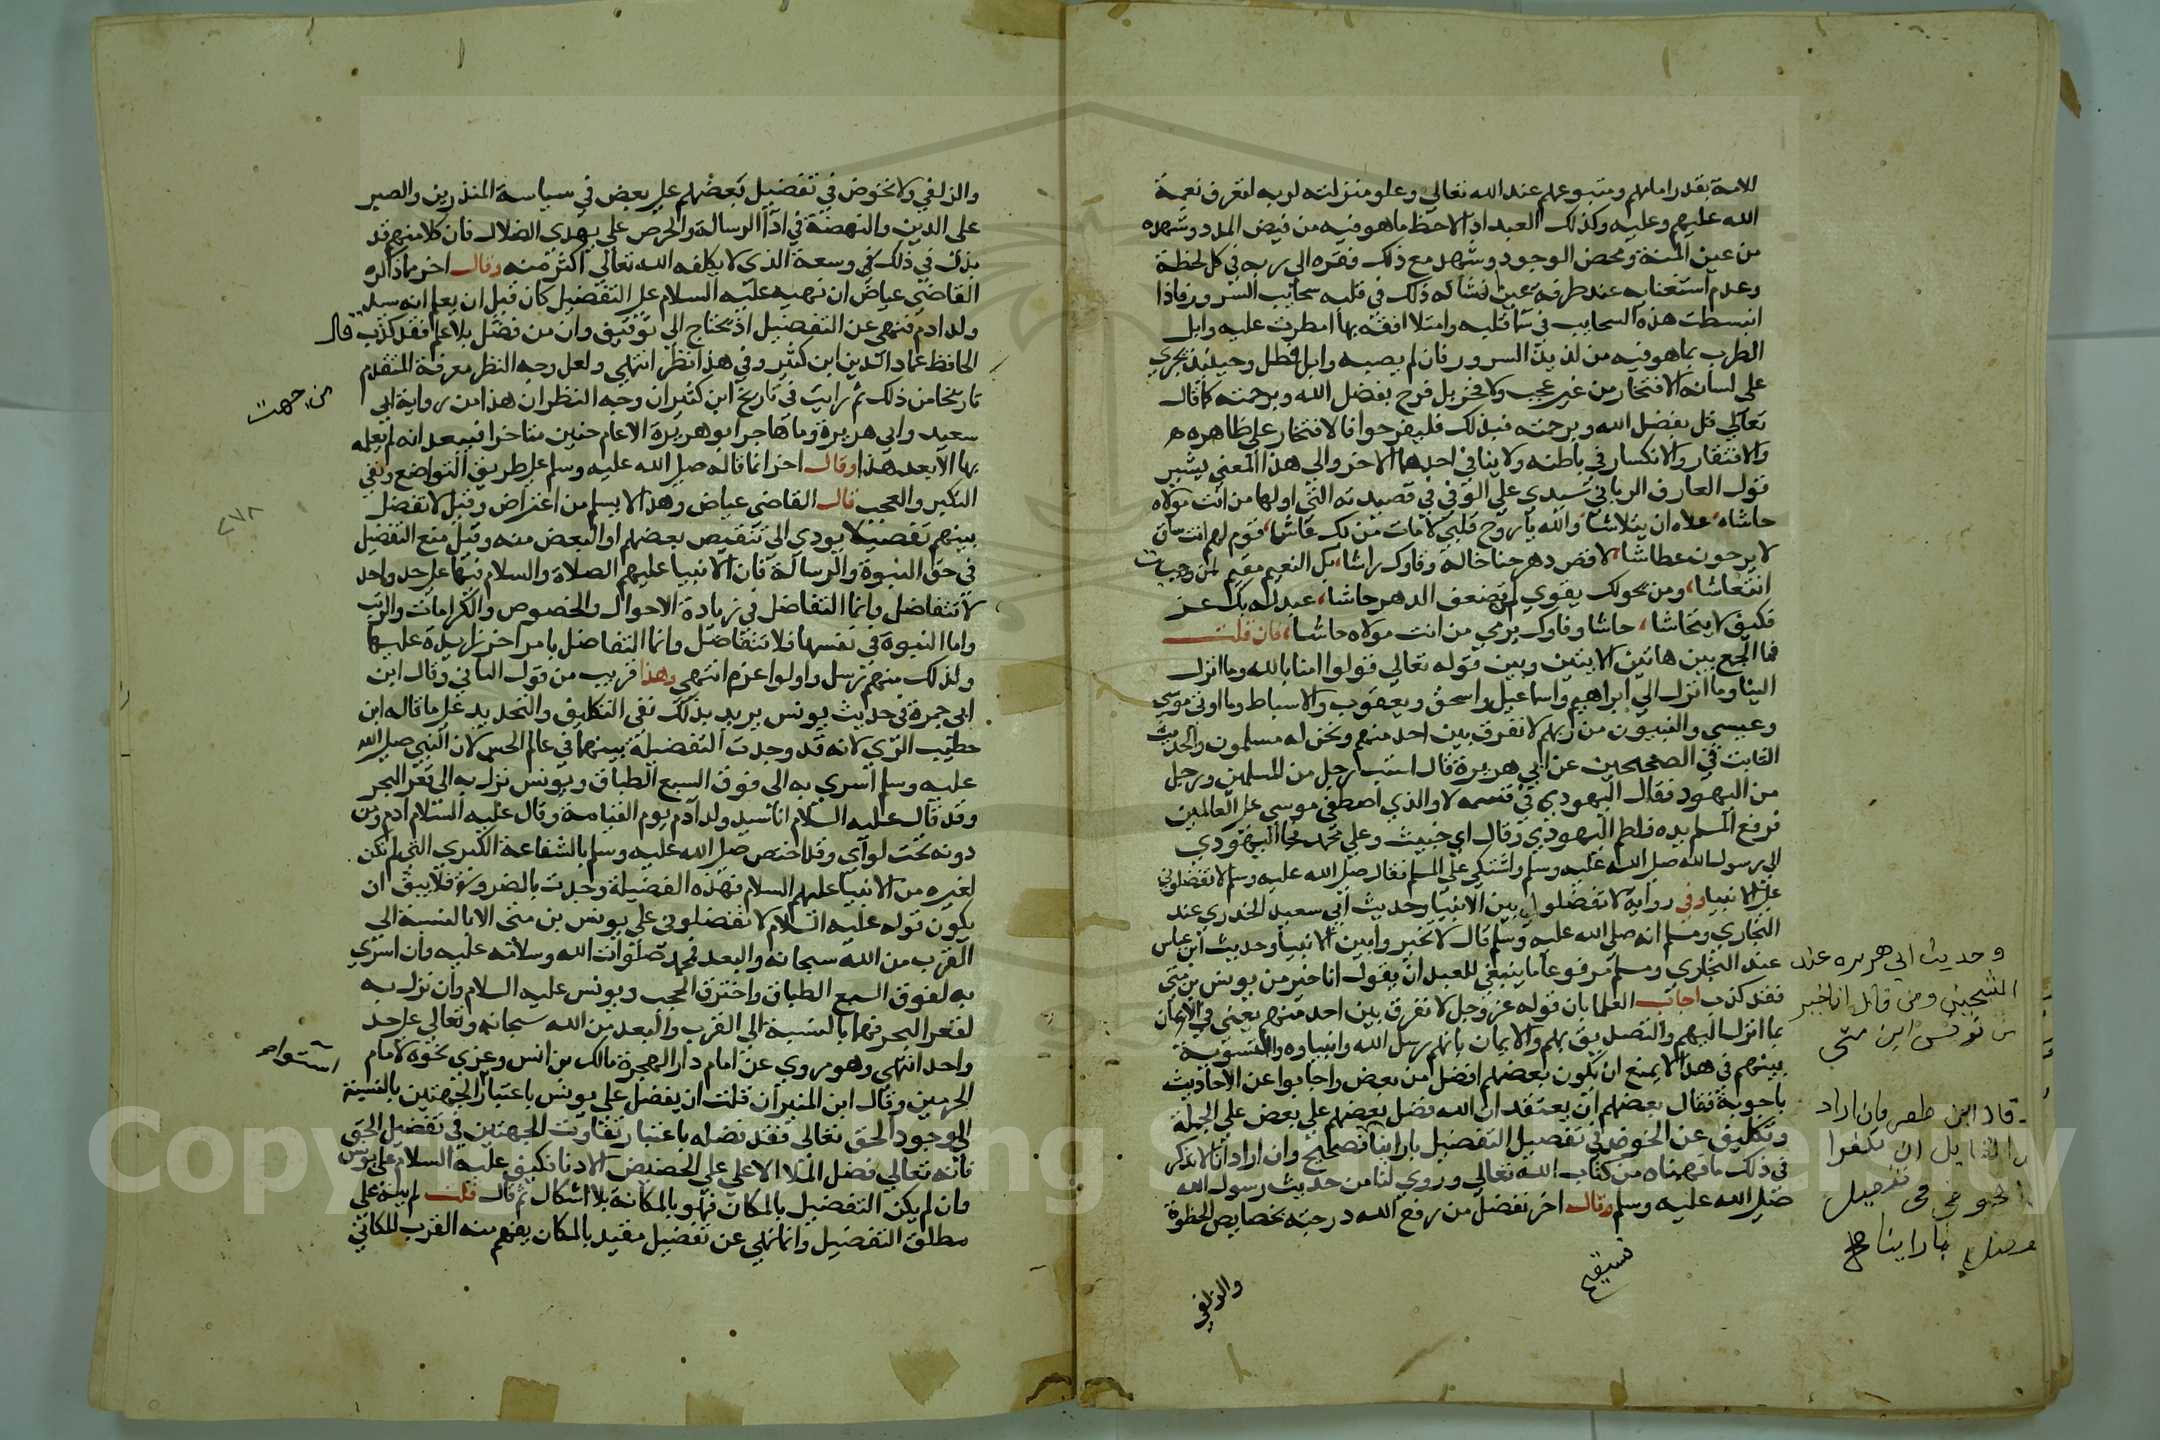 للامة بقدر امامهم ومتبوعهم عند الله تعالي وعلو منزلته لديه لتعرف نعمة
الله عليهم وعليه وكذلك العبد اذا لاحظ ما هو فيه من فيض المدد وشهده
من عين المنة ومحض الوجود وشهد مع ذلك فقره الي ربه في كل لحظة
وعدم استغنايه عنه طرفة عين انشا له ذلك في قلبه سحايب السرور فاذا
انبسطت هذه السحايب في سما قلبه وامتلا افقه بها امطرت عليه وابل
الطرب بما هو فيه من لذيذ السرور فان لم يصبه وابل فطل وحينئذ يجري
علي لسانه الافتخار من غير عجب ولا فخر بل فرح بفضل الله وبرحمته كما قال
تعالي قل بفضل الله وبرحمته فبذلك فليفرحوا فالافتخار علي ظاهره
والافتقار والانكسار في باطنه ولا ينافي احدهما الاخر والي هذا المعني يشير
قول العارف الرباني سيدي علي الوفي في قصيدته التي اولها من انت مولاه
حاشاه علاه ان يتلاشا والله يا روح قلبي لا مات من بك عاشا قوم لهم انت ساق
لا يرحون عطاشا لا قص دهر جناحا له وفاوك راشا بك النعيم مقيم لمن وهبت
انتعاشا ومن بحولك يقوي لم يضعف الدهر جاشا عبد له بك عز
فكيف لا يتحاشا حاشا وفاوك يرمي من انت مولاه حاشا فان قلت
فما الجمع بين هاتين الايتين وبين قوله تعالي قولوا امنا بالله وما انزل
الينا وما انزل الي ابراهيم واسماعيل واسحق ويعقوب والاسباط وما اوتي موسي
وعيسي والنبيون من ربهم لا نفرق بين احد منهم ونحن له مسلمون والحديث
الثابت في الصحيحين عن ابي هريرة قال استب رجل من المسلمين ورجل
من اليهود فقال اليهودي في قسمه لا والذي اصطفي موسي علي العالمين
فرفع المسلم يده فلطم اليهودي وقال اي خبيث وعلي محمد فجا اليهودي
الي رسول الله صلي الله عليه وسلم واشتكي علي المسلم فقال صلي الله عليه وسلم لا تفضلوني
علي الانبيا وفي رواية لا تفضلوا بين الانبيا وحديث ابي سعيد الخدري عند
البخاري ومسلم انه صلي الله عليه وسلم قال لا تخيروا بين الانبيا وحديث ابن عباس
عند البخاري ومسلم مرفوعا ما ينبغي للعبد ان يقول انا خير من يونس بن متي
فقد كذب اجاب العلما بان قوله عز وجل لا نفرق بين احد منهم يعني في الايمان
بما انزل اليهم والتصديق بهم والايمان بانهم رسل الله وانبياوه والتسوية
بينهم في هذا لا يمنع ان يكون بعضهم افضل من بعض واجابوا عن الاحاديث
باجوبة فقال بعضهم ان يعتقد ان الله فضل بعضهم علي بعض علي الجملة
وتكليف عن الخوض في تفصيل التفضيل بارائنا فصحيح وان اراد انا لا نذكر
في ذلك ما فهمناه من كتاب الله تعالي وروي لنا من حديث رسول الله
صلي الله عليه وسلم وقال اخر نفضل من رفع الله درجته بخصايص الحظوة
والزلفي
وحديث ابي هريره عند
الشيخين ومن قال انا خير
من يونس ابن متي
قال ابن
فان اراد
ان يكفوا
الخوض في تفصيل
بارائنا صح
والزلفي ولا نخوض في تفضيل بعضهم علي بعض في سياسة المنذرين والصبر
علي الدين والنهضة في ادا الرسالة والحرص علي هدي الضلال فان كلا منهم قد
بذل في ذلك في وسعه الذي لا يكلفه الله تعالي اكثر منه وقال اخر مما ذكره
القاضي عياض ان نهيه عليه السلام علي التفضيل كان قبل ان يعلم انه سيد
ولد ادم فنهي عن التفضيل اذ يحتاج الي توقيف وان من فضل بلا علم فقد كذب قال
الحافظ عماد الدين ابن كثير وفي هذا نظر انتهي ولعل وجه النظر معرفة المتقدم
تاريخا من ذلك ثم رايت في تاريخ ابن كثير ان وجه النظر ان هذا من رواية ابي
من جهت
سعيد وابي هريرة وما هاجر ابو هريرة الا عام حنين متاخرا فيبعد انه لم يعلمه
بها الا بعد هذا وقال اخر انما قاله صلي الله عليه وسلم علي طريق التواضع ونفي
التكبر والعجب قال القاضي عياض وهذا لا يسلم من اعتراض وقيل لا تفضل
٢٧٨
بينهم تفضيلا يودي الي تنقيص بعضهم او البعض منه وقيل منع التفضيل
في حق النبوة والرسالة فان الانبيا عليهم الصلاة والسلام فيها علي حد واحد
لا تتفاضل وانما التفاضل في زيادة الاحوال والخصوص والكرامات والرتب
واما النبوة في نفسها فلا تتفاضل وانما التفاضل بامر اخر زايدة عليها
ولذلك منهم رسل واولوا عزم انتهي وهذا قريب من قول الثاني وقال ابن
ابي جمرة في حديث يونس يريد بذلك نفي التكليف والتحديد علي ما قاله ابن
خطيب الري لانه قد وجدت التفضيلة بينهما في عالم الحس لان النبي صلي الله
عليه وسلم اسري به الي فوق السبع الطباق ويونس نزل به الي قعر البحر
وقد قال عليه السلام انا سيد ولد ادم يوم القيامة وقال عليه السلام ادم ومن
دونه تحت لوآي وقد اختص صلي الله عليه وسلم بالشفاعة الكبري التي لم تكن
لغيره من الانبيا عليهم السلام فهذه الفضيلة وجدت بالضرورة فلا يبق ان
يكون قوله عليه السلام لا تفضلوني علي يونس بن متي الا بالنسبة الي
القرب من الله سبحانه والبعد فمحمد صلوات الله وسلامه عليه وان اسري
به لفوق السبع الطباق واخترق الحجب ويونس عليه السلام وان نزل به
لقعر البحر فهما بالنسبة الي القرب والبعد من الله سبحانه وتعالي علي حد
واحد انتهي وهو مروي عن امام دار الهجرة مالك بن انس وعزي نحوه لامام
استواء
الحرمين وقال ابن المنير ان قلت ان يفضل علي يونس باعتبار الجهتين بالنسبة
الي وجود الحق تعالي فقد فضله باعتبار تفاوت الجهتين في تفضيل الحق
فانه تعالي فضل الملا الاعلي علي الحضيض الادنا فكيف عليه السلام علي يونس
وان لم يكن التفضيل بالمكان فهو بالمكانة بلا اشكال ثم قال قلت لم ينه علي
مطلق التفضيل وانما نهي عن تفضيل مقيد بالمكان يفهم منه القرب المكاني